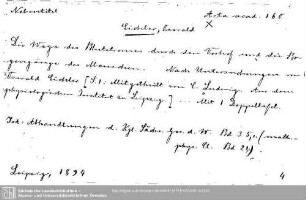 Nebentitel Acta acad. 160
Eichler, Oswald X
Die Wege des Blutstromes durch den Vorhof und die Bo-
gengänge des Menschen. Nach Untersuchungen von
Oswald Eichler [S. 1: Mitgetheilt von C. Ludwig. Aus dem
physiologischen Institut zu Leipzig.] ... Mit 1 Doppeltafel.
In: Abhandlungen d. Kgl. Sächs. Ges. d. W. Bd 35, (math.-
phys. Cl. Bd 21)
Leipzig, 1894 4